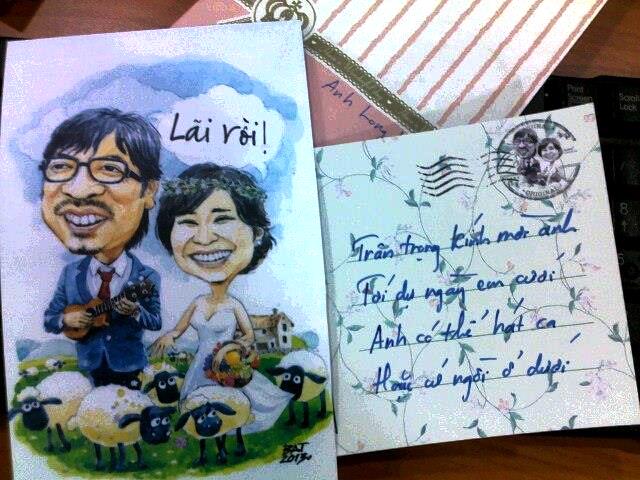 Lãi rồi!
BAT
2013
Anh Long
Trân trọng kính mời anh
Tới dự ngày em cưới
Anh có thể hát ca
Hoặc cứ ngồi ở dưới
Print
Screen
Scroll
Lock
8